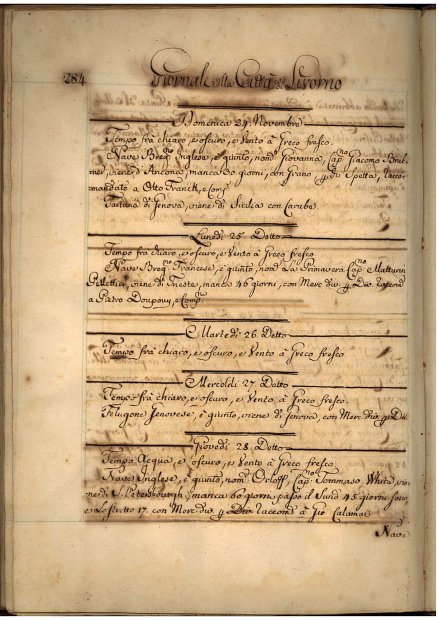 284
Giornale della Città di Livorno
Domenica 24. Novembre
Tempo frà chiaro, e oscuro, e Vento à Greco fresco.
Nave Breg.no Inglese, è giunto, nom.º Giovanna, Cap.no Giacomo
viene d'Ancona, manca 20 giorni, con Grano, p Spetta, raccomandato a Otto Franck, e Comp.
Tartana di Genova, viene di Sicilia con Carube.
Lunedì 25. Detto
Tempo frà chiaro, e oscuro, e Vento à Greco fresco.
Nave Breg.no Francese, è giunto, nom.º La Primavera Cap.no Matturin
Pelletier, viene di Trieste, manca 46 giorni, con Merc. div. p Div. raccom.
a Pietro Doupouy, e Comp.
Martedì 26. Detto
Tempo frà chiaro, e oscuro, e Vento à Greco fresco.
Mercoldì 27. Detto
Tempo frà chiaro, e oscuro, e Vento à Greco fresco.
Filugone Genovese, è giunto, viene di Genova, con Merc. div. p Di.
Giovedì 28. Detto
Tempo Acqua, e oscuro, e Vento à Greco fresco.
Nave Inglese, è giunto, nom.º Orloff, Cap.no Tommaso White, vie-
ne di S. Petersbourgh, manca 60 giorni, passò il Sund 45 giorni sono,
e lo Stretto 17. con Merc. div. p Div. raccom. à Gio. Calamai
Nave